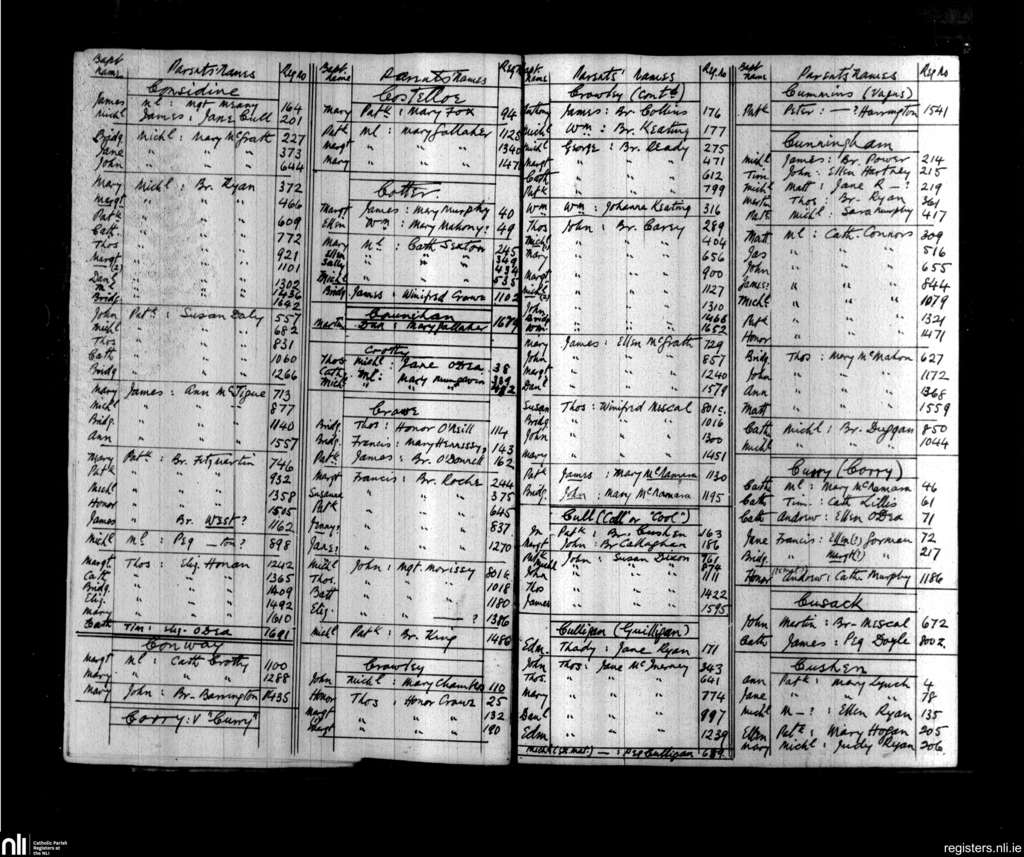 Bapt name Parents' names Reg no
Considine
James Ml: Mgt Meany 164
Michl James: Jane Cull 201
Bridg Michl: Mary McGrath 227
Jane " " 373
John " " 644
Mary Michl: Br. Ryan 372
Margt " " 466
Patk " " 609
Cath " " 772
Thos " " 921
Margt (2) " " 1101
Danl " " 1302
Ml " " 1436
Bridg. " " 1642
John Patk: Susan Daly 557
Michl " " 682
Thos " " 831
Cath " " 1060
Bridg " " 1266
Mary James: Ann McTigue 713
Michl " " 877
Bridg. " " 1140
Ann " " 1557
Mary Patk: Br. Fitzmartin 746
Patk " " 932
Michl " " 1358
Honor " " 1505
James " Br. West? 1162
Michl Ml: Peg —ton? 898
Margt Thos: Eliz. Honan 1242
Cath " " 1365
Bridg. " " 1409
Eliz. " " 1492
Mary " " 1610
Cath Tim: Eliz. O'Dea 1691
Conway
Margt Ml: Cath Crotty 1100
Mary " " 1288
Mary John: Br. Barrington 1435
Corry: v "Curry"
Bapt name Parents names Reg no
Costelloe
Mary Patk: Mary Fox 94
Patk Ml: Mary Fallaher 1125
Margt " " 1340
Mary " " 1471
Cotter
Margt James: Mary Murphy 40
Ellen Wm: Mary Mahony? 49
Mary Ml: Cath Sexton 245
Ellen " " 349
Sally " " 434
Michl " " 535
Bridg James: Winifred Crowe 1102
Counihan
Martin Dan: Mary Fallaher 1679
Crotty
Thos Michl: Jane O'Dea 38
Cath Ml: Mary Mungovin 389
Michl " " 492
Crowe
Bridg. Thos: Honor O'Neill 114
Bridg. Francis: Mary Hennessy 143
Patk James: Br. O'Donnell 162
Margt Francis: Br. Roche 244
Susanna " " 375
Patk " " 645
Jenny? " " 837
Jane? " " 1270
Michl John: Mgt. Morrissy 801a
Thos. " " 1018
Batt " " 1180
Eliz. " —? 1386
Michl Patk: Br. King 1486
Crowley
John Michl: Mary Chambers 110
Honor Thos: Honor Crowe 25
Margt " " 132
Margt " " 190
Bapt name Parents' names Reg. no
Crowley (contd)
Antony James: Br. Collins 176
Michl Wm: Br. Keating 177
Michl George: Br. Deady 275
Margt " " 471
Cath " " 612
Patk " " 799
Wm Wm: Johanna Keating 316
Thos John: Br. Carey 289
Michl " " 404
Mary " " 656
Margt " " 900
Michl (2) " " 1127
John " " 1310
Bridg " " 1466
Wm. " " 1652
Mary James: Ellen McGrath 729
John " " 857
Margt " " 1240
Danl " " 1579
Susan Thos: Winifred Mescal 801c.
Bridg " " 1016
John " " 1300
Mary " " 1451
Patk James: Mary McNamara 1130
Bridg. John: Mary McNamara 1195
Cull (Coll or "Cool")
Jn Patk: Br. Cushen 163
Margt John: Br Callaghan 186
Patk John: Susan Dixon 761
Michl " " 874
John " " 1111
Thos " " 1422
James " " 1595
Culligan (Quilligan)
Edm. Thady: Jane Ryan 171
John Thos: Jane McInerney 343
Thos " " 641
Mary " " 774
Danl " " 997
Edm " " 1239
Michl — : Peg Culligan
Bapt name Parents names Reg No
Cummins (Vages)
Patk Peter: —? Harrington 1541
Cunningham
Michl James: Br. Power 214
Tim John: Ellen Hartney 215
Michl Matt: Jane R—? 219
Martin Thos: Br. Ryan 361
Patk Michl: Sara Murphy 417
Matt Ml: Cath. Connors 309
Jas " " 516
John " " 655
James? " " 844
Michl " " 1079
Patk " " 1321
Honor " " 1471
Bridg Thos: Mary McMahon 627
John " " 1172
Ann " " 1368
Matt " " 1559
Cath Michl: Br. Duggan 850
Michl " " 1044
Curry (Corry)
Cath Ml: Mary McNamara 46
Cath Tim: Cath Lillis 61
Cath Andrew: Ellen O'Dea 71
Jane Francis: Ellen(?) Gorman 72
Bridg. " Margt(?) " 217
Honor Andrew: Cath Murphy 1186
Cusack
John Martin: Br. Mescal 672
Cath James: Peg Doyle 800z.
Cushen
Ann Patk: Mary Lynch 4
Jane " " 78
Michl M—?: Ellen Ryan 135
Ellen Patk: Mary Hogan 205
Mary Michl: Judy Ryan 206.
nli
Catholic Parish
Registers at
the NLI
registers.nli.ie